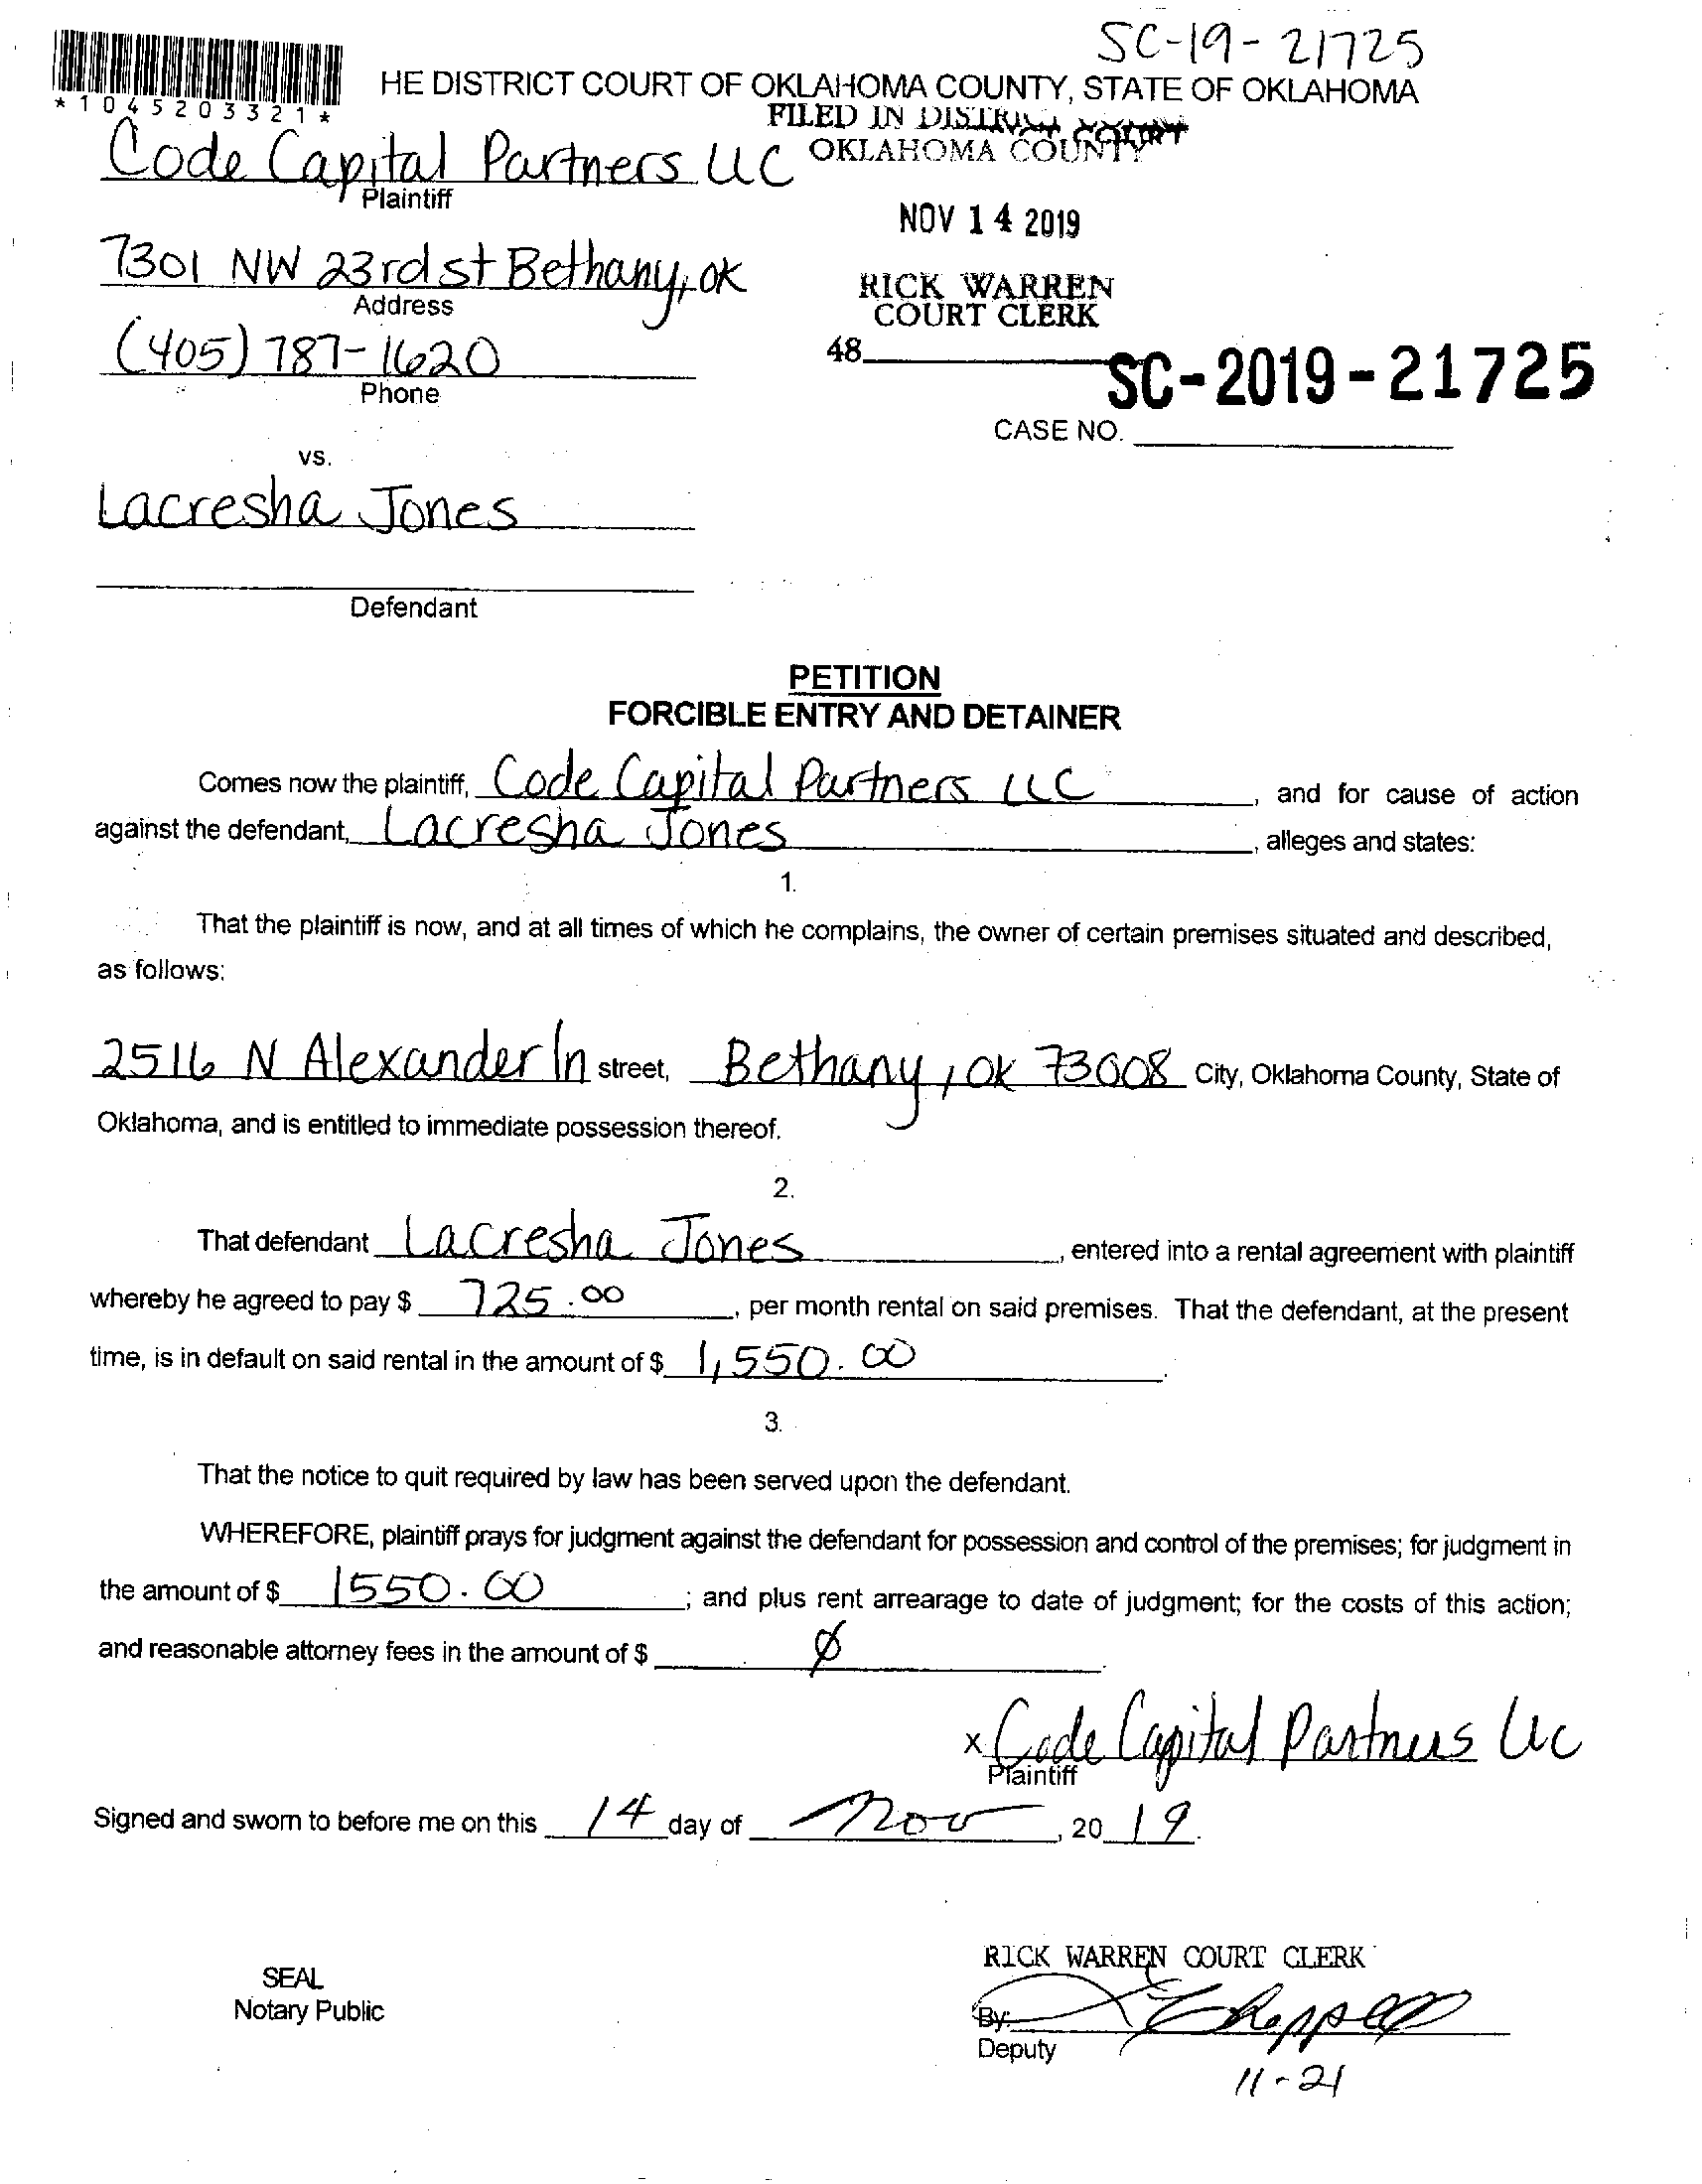 SC-19-21725
HE DISTRICT COURT OF OKLAHOMA COUNTY, STATE OF OKLAHOMA
*1045203321*
FILED IN DISTRICT COURT
OKLAHOMA COUNTY
Code Capital Partners LLC
Plaintiff
NOV 14 2019
7301 NW 23rd st Bethany, OK
Address
RICK WARREN
COURT CLERK
(405) 787-1620
Phone
48
SC-2019-21725
CASE NO.
vs.
Lacresha Jones
Defendant
PETITION
FORCIBLE ENTRY AND DETAINER
Comes now the plaintiff, Code Capital Partners LLC, and for cause of action
against the defendant, Lacresha Jones, alleges and states:
1.
That the plaintiff is now, and at all times of which he complains, the owner of certain premises situated and described,
as follows:
2516 N Alexander ln street, Bethany, OK 73008 City, Oklahoma County, State of
Oklahoma, and is entitled to immediate possession thereof.
2.
That defendant Lacresha Jones, entered into a rental agreement with plaintiff
whereby he agreed to pay $ 725.00, per month rental on said premises. That the defendant, at the present
time, is in default on said rental in the amount of $ 1,550.00.
3.
That the notice to quit required by law has been served upon the defendant.
WHEREFORE, plaintiff prays for judgment against the defendant for possession and control of the premises; for judgment in
the amount of $ 1550.00; and plus rent arrearage to date of judgment; for the costs of this action;
and reasonable attorney fees in the amount of $ Ø.
x Code Capital Partners LLC
Plaintiff
Signed and sworn to before me on this 14 day of Nov, 2019.
RICK WARREN COURT CLERK
SEAL
Notary Public
By:
Deputy
11-21